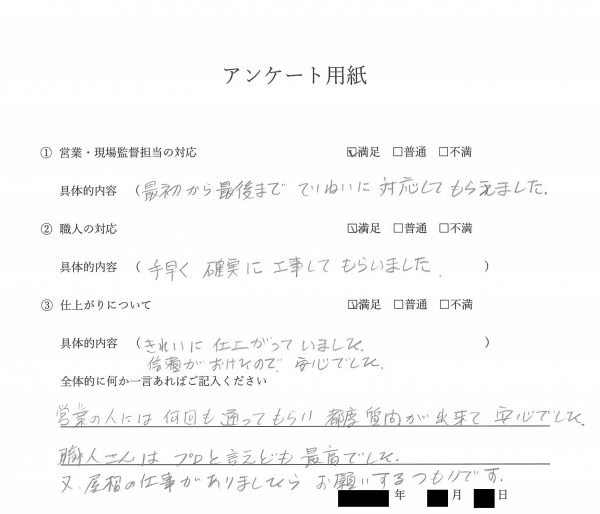 アンケート用紙
① 営業・現場監督担当の対応 ☑満足 □普通 □不満
具体的内容 （最初から最後まで ていねいに 対応して もらえました.
② 職人の対応 ☑満足 □普通 □不満
具体的内容 （ 手早く 確実に 工事して もらいました. ）
③ 仕上がりについて ☑満足 □普通 □不満
具体的内容 （きれいに 仕上がって いました. ）
信頼が おけたので 安心でした.
全体的に何か一言あればご記入ください
営業の人には 何回も 通ってもらい 都度 質問が 出来て 安心でした.
職人さんは プロと言えども 最高でした.
又、屋根の仕事がありましたら お願いするつもりです.
年 月 日